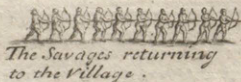 The Savages returning
to the Village.